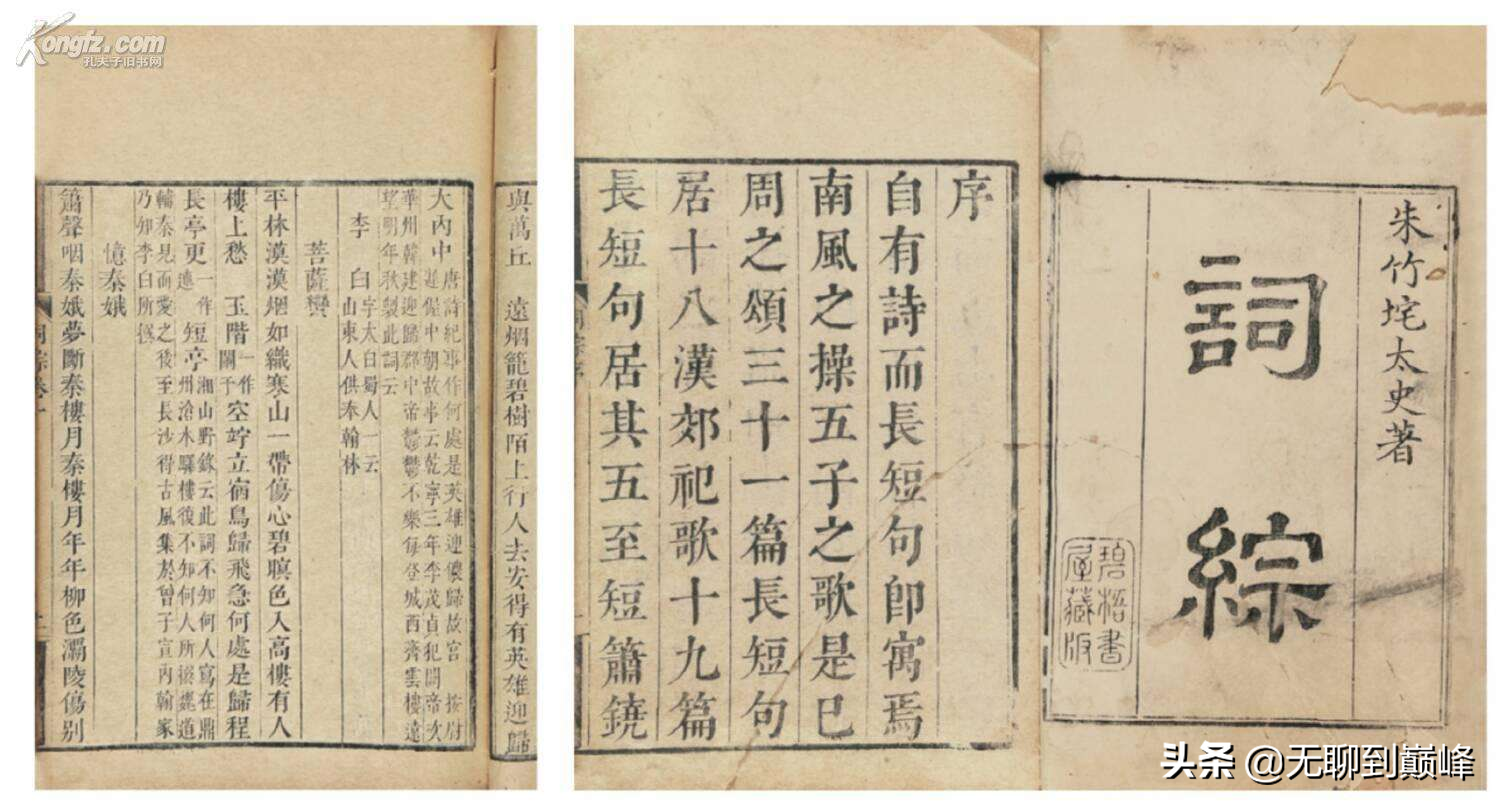 Kongfz.com
孔夫子旧书网
與萬丘　遠烟籠碧樹陌上行人去安得有英雄迎歸
大內中唐詩紀事作何處是英雄迎儂歸故宮　按尉
遲偓中朝故事云乾寧三年李茂貞犯闕帝次
華州韓建迎歸郡中帝鬱鬱不樂每登城西齊雲樓遠
望明年秋製此詞云
李　白字太白蜀人一云
山東人供奉翰林
菩薩蠻
平林漠漠烟如織寒山一帶傷心碧暝色入高樓有人
樓上愁　玉階一作闌干空竚立宿鳥歸飛急何處是歸程
長亭更一作連短亭湘山野錄云此詞不知何人寫在鼎
州滄水驛樓復不知何人所撰魏道
輔泰見而愛之後至長沙得古風集於曾子宣內翰家
乃知李白所撰
憶秦娥
簫聲咽秦娥夢斷秦樓月秦樓月年年柳色灞陵傷別
朱竹垞太史著
詞綜
碧梧書
屋藏版
序
自有詩而長短句卽寓焉
南風之操五子之歌是已
周之頌三十一篇長短句
居十八漢郊祀歌十九篇
長短句居其五至短簫鐃
头条 @无聊到巅峰